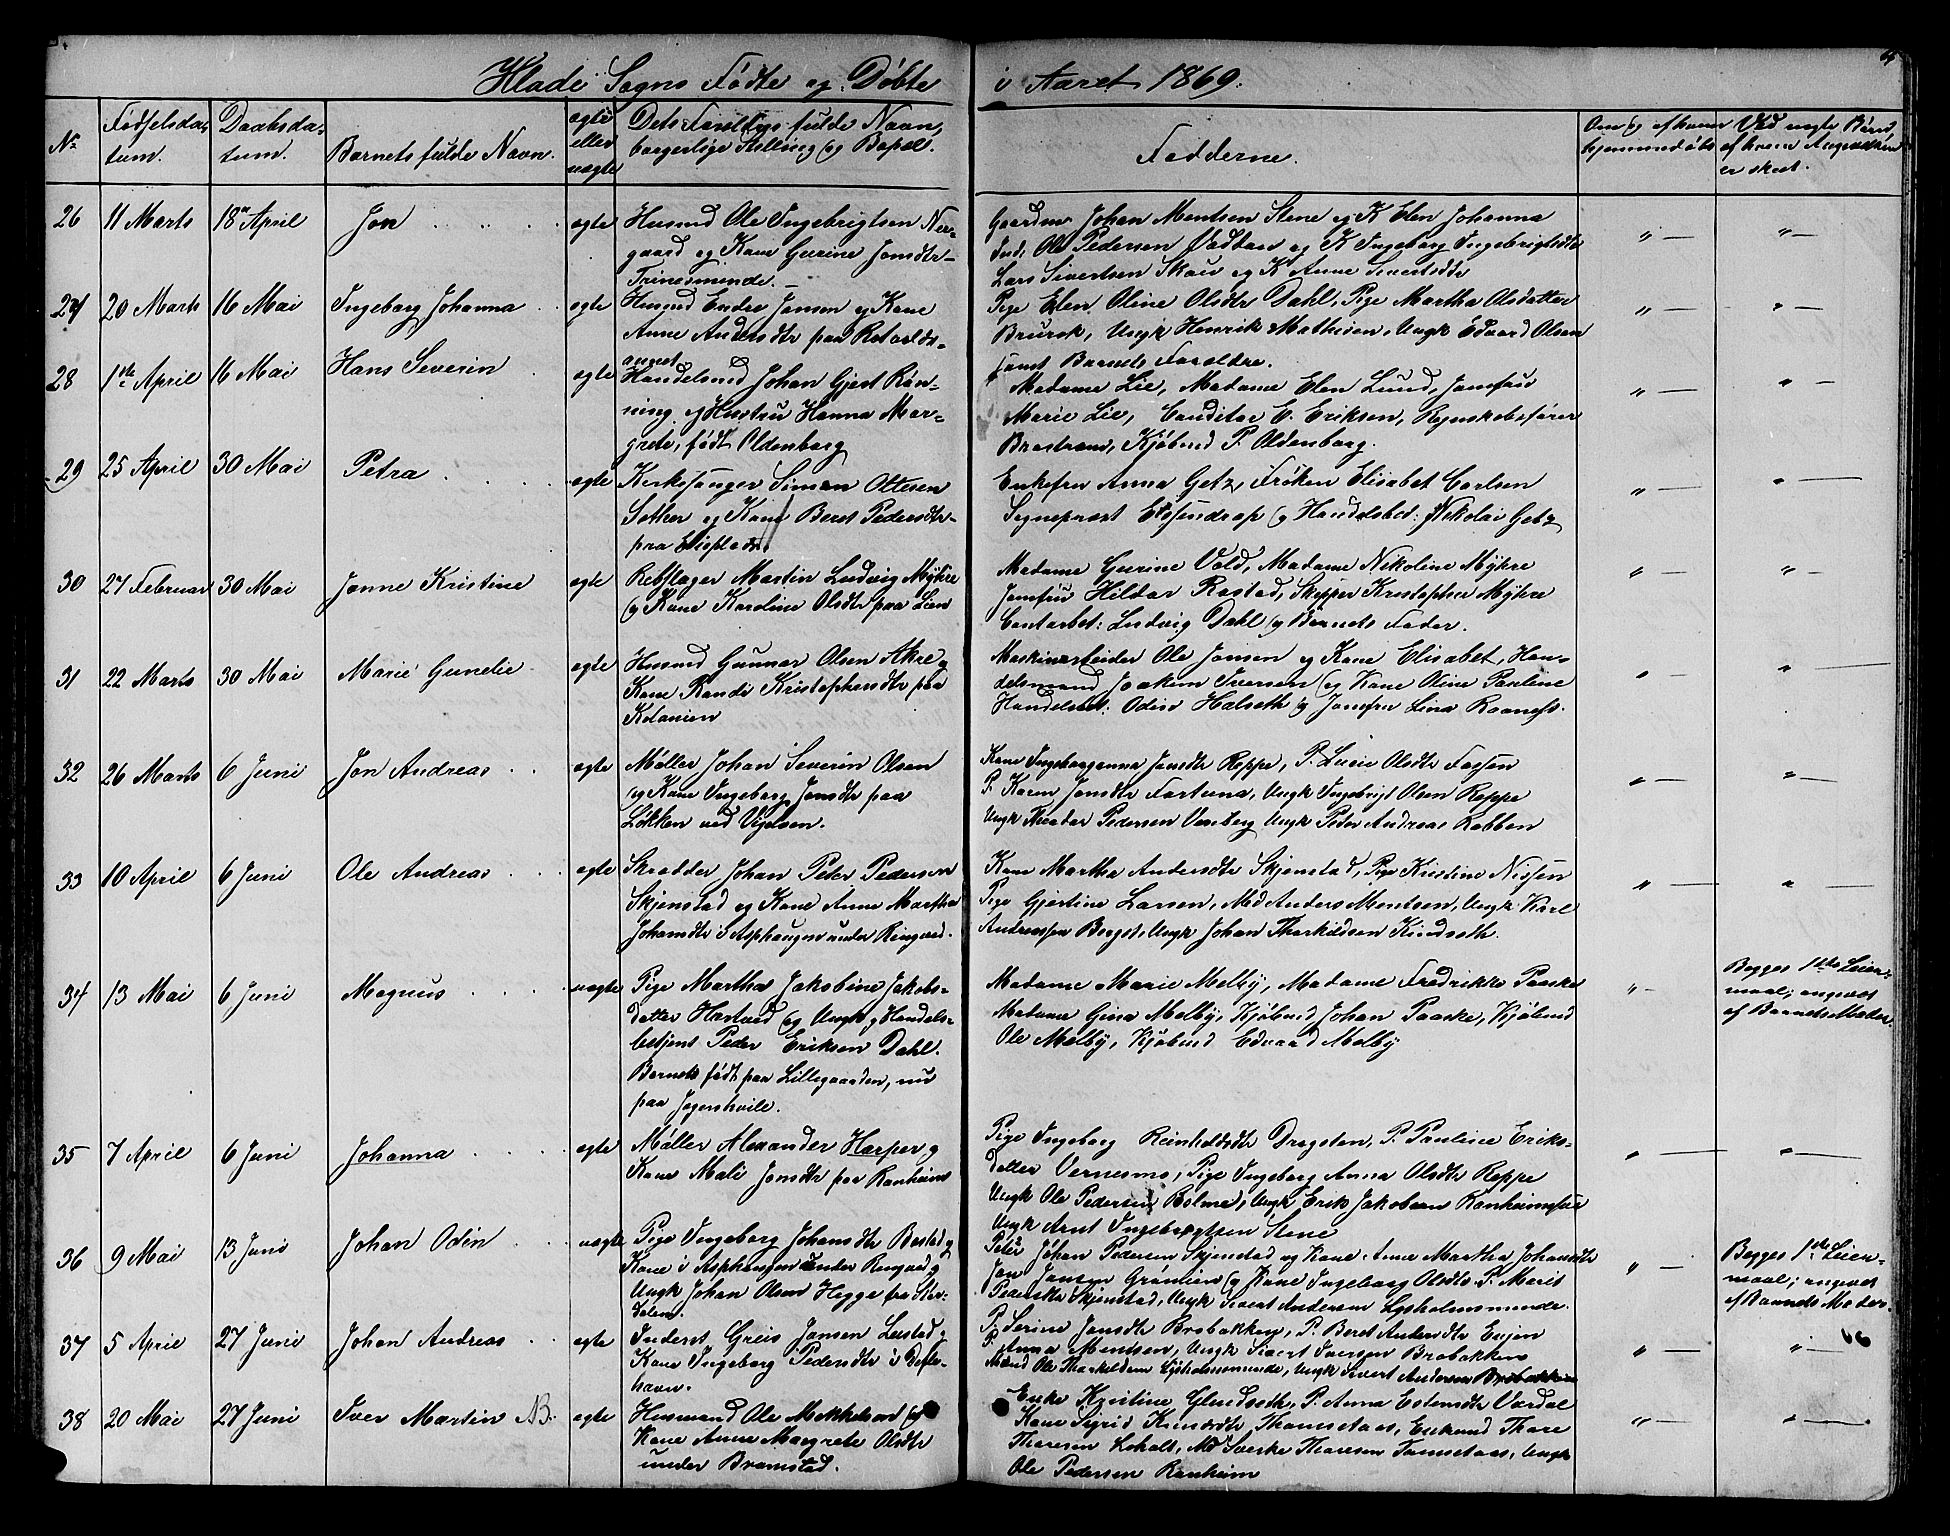 Hlade Sogns Fødte og Døbte i Aaret 1869.
No
Fødselsda-
tum.
Daabsda-
tum.
Barnets fulde Navn.
ægte
eller
uægte
Dets Forældres fulde Navn,
borgerlige Stilling og Bopæl.
Fadderne.
Om og af hvem
hjemmedøbt
Ved uægte Børn,
af hvem Angivelsen
er skeet.
26 11 Marts 18de April Jon ægte
Husmd Ole Ingebrigtsen Ner-
gaard og Kone Gurine Jonsdtr
Trinesminde.
Gaardm Johan Mentsen Stene og K Elen Johanna
Ind. Ole Pedersen Vaddan og K Ingeborg Ingebrigtsdtr
Lars Sivertsen Skau og K Anne Sivertsdtr
27 20 Marts 16 Mai Ingeborg Johanna ægte
Husmd Endre Jansen og Kone
Anne Andersdtr paa Rotvolds-
aunet
Pige Elen Oline Olsdtr Dahl, Pige Martha Olsdatter
Brurok, Ungk Henrik Mathisen, Ungk Edvard Olsen
samt Barnets Forældre.
28 1ste April 16 Mai Hans Severin ægte
Handelsmd Johan Gjert Røn-
ning og Hustru Hanna Mar-
grete, født Oldenborg
Madame Lie, Madame Elen Lund, Jomfru
Marie Lie, Conditor E. Eriksen, Regnskabsfører
Brostrøm, Kjøbmd P. Oldenborg.
29 25 April 30 Mai Petra ægte
Kirkesanger Simon Ottesen
Sæther og Kone Beret Pedersdtr
fra
Enkefru Anna Getz, Frøken Elisabet Carlsen
Sogneprest Essendrop og Handelsbet: Nikolai Getz
30 27 Februar 30 Mai Janne Kristine ægte
Rebslager Martin Ludvig Myhre
og Kone Karoline Olsdtr paa Lien
Madame Gurine Vold, Madame Nikoline Myhre
Jomfru Hilda Rostad, Skipper Kristopher Myhre
Contorbet: Ludvig Dahl og Barnets Fader.
31 22 Marts 30 Mai Marie Gunelie ægte
Husmd Gunnar Olsen Akre og
Kone Randi Kristophersdtr paa
Kolonien
Maskinarbeider Ole Jansen og Kone Elisabet, Han-
delsmand Joakim Iversen og Kone Oline Pauline
Handelsbet: Odin Halseth og Jomfru Lina Raaness.
32 26 Marts 6 Juni Jon Andreas ægte
Møller Johan Severin Olsen
og Kone Ingeborg Jonsdtr paa
Løkken ved Vigelsen.
Kone Ingeborganna Jonsdtr Reppe, P. Lucie Olsdtr Fossen
P. Karen Jonsdtr Fortuna, Ungk Ingebrigt Olsen Reppe
Ungk Theodor Pedersen Venberg Ungk Peter Andreas Kobben
33 10 April 6 Juni Ole Andreas ægte
Skrædder Johan Peter Pedersen
Skjenstad og Kone Anne Martha
Johansdtr i Asphaugen under Ringved.
Kone Martha Andersdtr Skjenstad, Pige Kristine Nissen
Pige Gjertine Larsen, Md Anders Mentsen, Ungk Karl
Andreassen Bergst, Ungk Johan Thorkildsen Kindseth.
34 13 Mai 6 Juni Magnus uægte
Pige Martha Jakobine Jakobs-
datter Hastved og Ungk og Handels-
betjent Peder Eriksen Dahl.
Barnet født paa Lillegaarden, nu
paa Jegershvile.
Madame Marie Melby, Madame Fredrikke Paaske
Madame Gina Melby, Kjøbmd Johan Paaske, Kjøbmd
Ole Melby, Kjøbmd Edvard Melby
Begges 1ste Leier-
maal; angivet
af Barnets Moder.
35 7 April 6 Juni Johanna ægte
Møller Alexander Harper og
Kone Mali Jonsdtr paa Ranheim
Pige Ingeborg Reinholdsdtr Dragsten, P. Pauline Eriks-
datter Vernesmo, Pige Ingeborg Anna Olsdtr Reppe
Ungk Ole Pedersen Bolme, Ungk Erik Jakobsen Ranheimsfue
Ungk Arnt Ingebrigtsen Stene
36 9 Mai 13 Juni Johan Odin uægte
Pige Ingeborg Johansdtr Bostad og
Kone i Asphaugen under Ringved og
Ungk Johan Olsen Hegge fra Stør-
dalen.
Peter Johan Pedersen Skjenstad og Kone Anne Martha Johansdtr
Jon Jonsen Grønlien og Kone Ingeborg Olsdtr P. Marit
Pedersdtr Skjenstad, Ungk Sivert Andersen Lysholmsminde.
Begges 1ste Leier-
maal; angivet
af Barnets Moder.
37 5 April 27 Juni Johan Andreas ægte
Inderst Greis Jansen Leistad og
Kone Ingeborg Pedersdtr i
havn.
P. Serine Jonsdtr Brobakken, P. Beret Andersdtr Engen
P. Anna Mentsen, Ungk Sivert Iversen Brobakken
Mand Ole Thorkeldsen Lysholmsminde, Ungk Sivert Andersen Brobakken
66
38 20 Mai 27 Juni Iver Martin NB. ægte
Husmand Ole Mikkelsen og
Kone Anne Margrete Olsdtr
under Bromstad.
Enke Kristine Glendseth, P. Anna Estensdtr Vordal
Kone Sigrid Knudsdtr Thomstaas, Enkemd Thore
Thoresen Loholt, Md Sverke Thoresen Tomstaas, Ungk
Ole Pedersen Ranheim